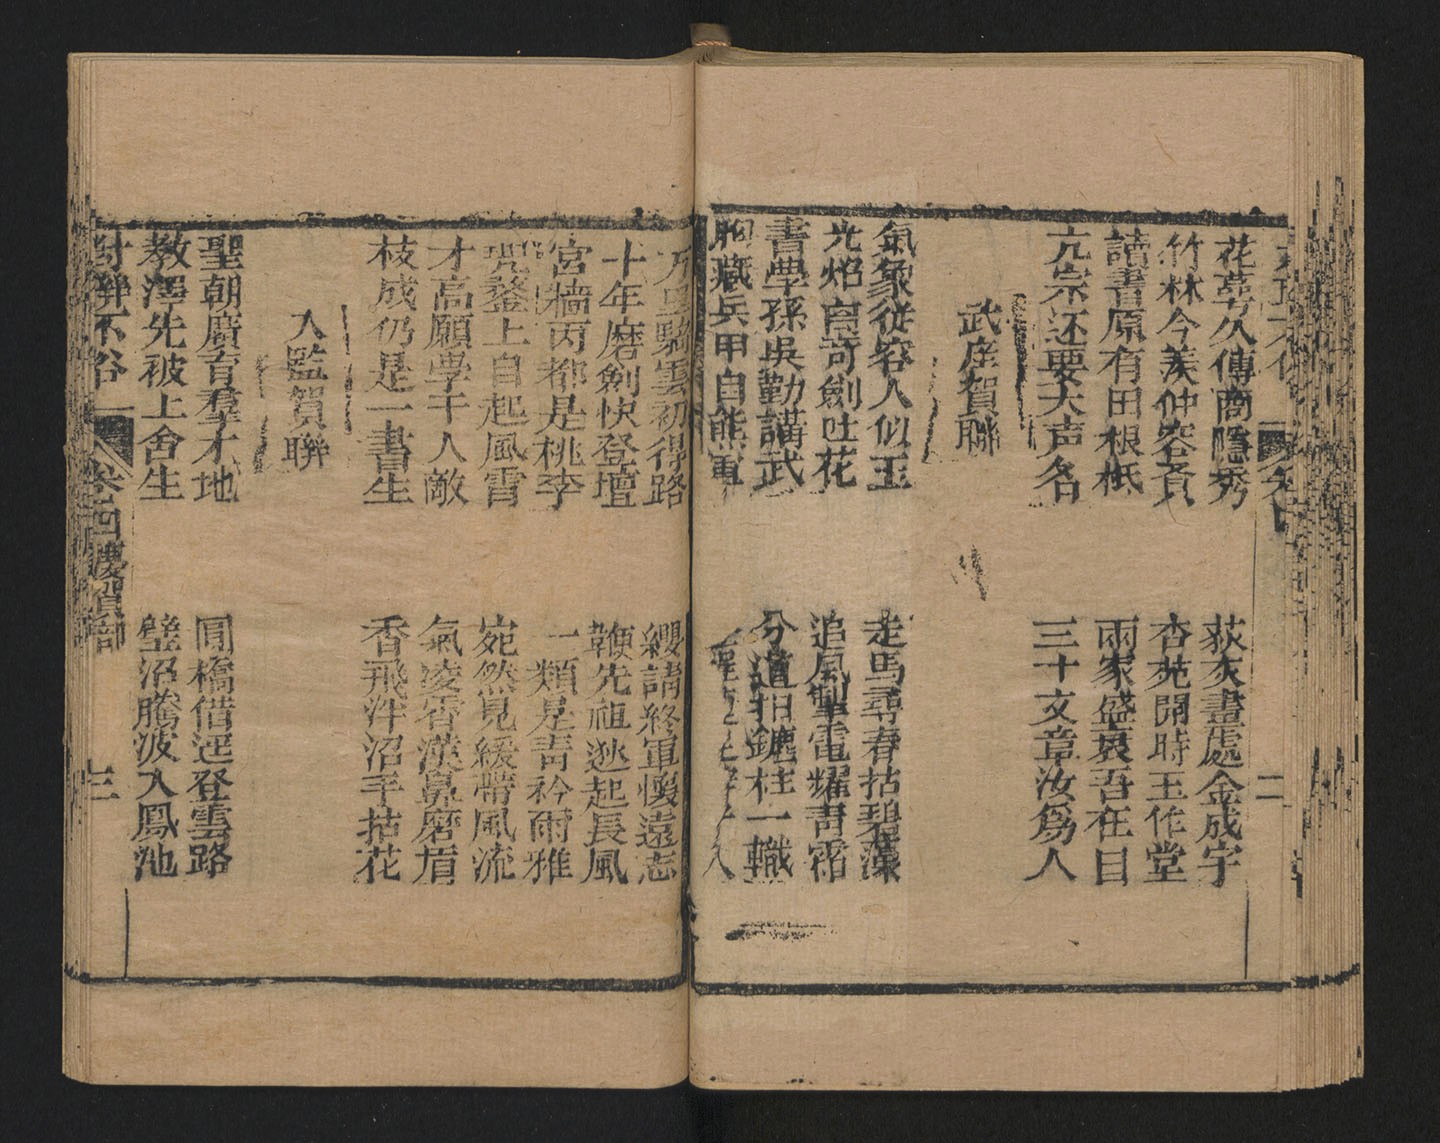 花萼久傳商隱秀
荻灰畫處金成字
竹林今羡仲容賢
杏苑開時玉作堂
讀書原有田根柢
兩家盛衰吾在目
亢宗还要大声名
三十文章汝為人
武庠賀聯
氣象從容人似玉
走馬尋春拈碧藻
光焰奇劍吐花
追風掣電耀青霜
書學孫吳勤講武
分道柱一幟
胸藏兵甲自熊軍
萬里騎雲初得路
纓請終軍懷遠志
十年磨劍快登壇
鞭先祖逖起長風
宮牆丙都是桃李
一類是青衿雨雅
咒鼇上自起風雷
宛然見緩帶風流
才高願學千人敵
氣凌霄漢鼻磨盾
枝成仍是一書生
香飛泮沼手拈花
入監賀聯
聖朝廣育羣才地
圜橋借逕登雲路
教澤先被上舍生
璧沼騰波入鳳池
對聯不俗 卷四慶賀部 三
二